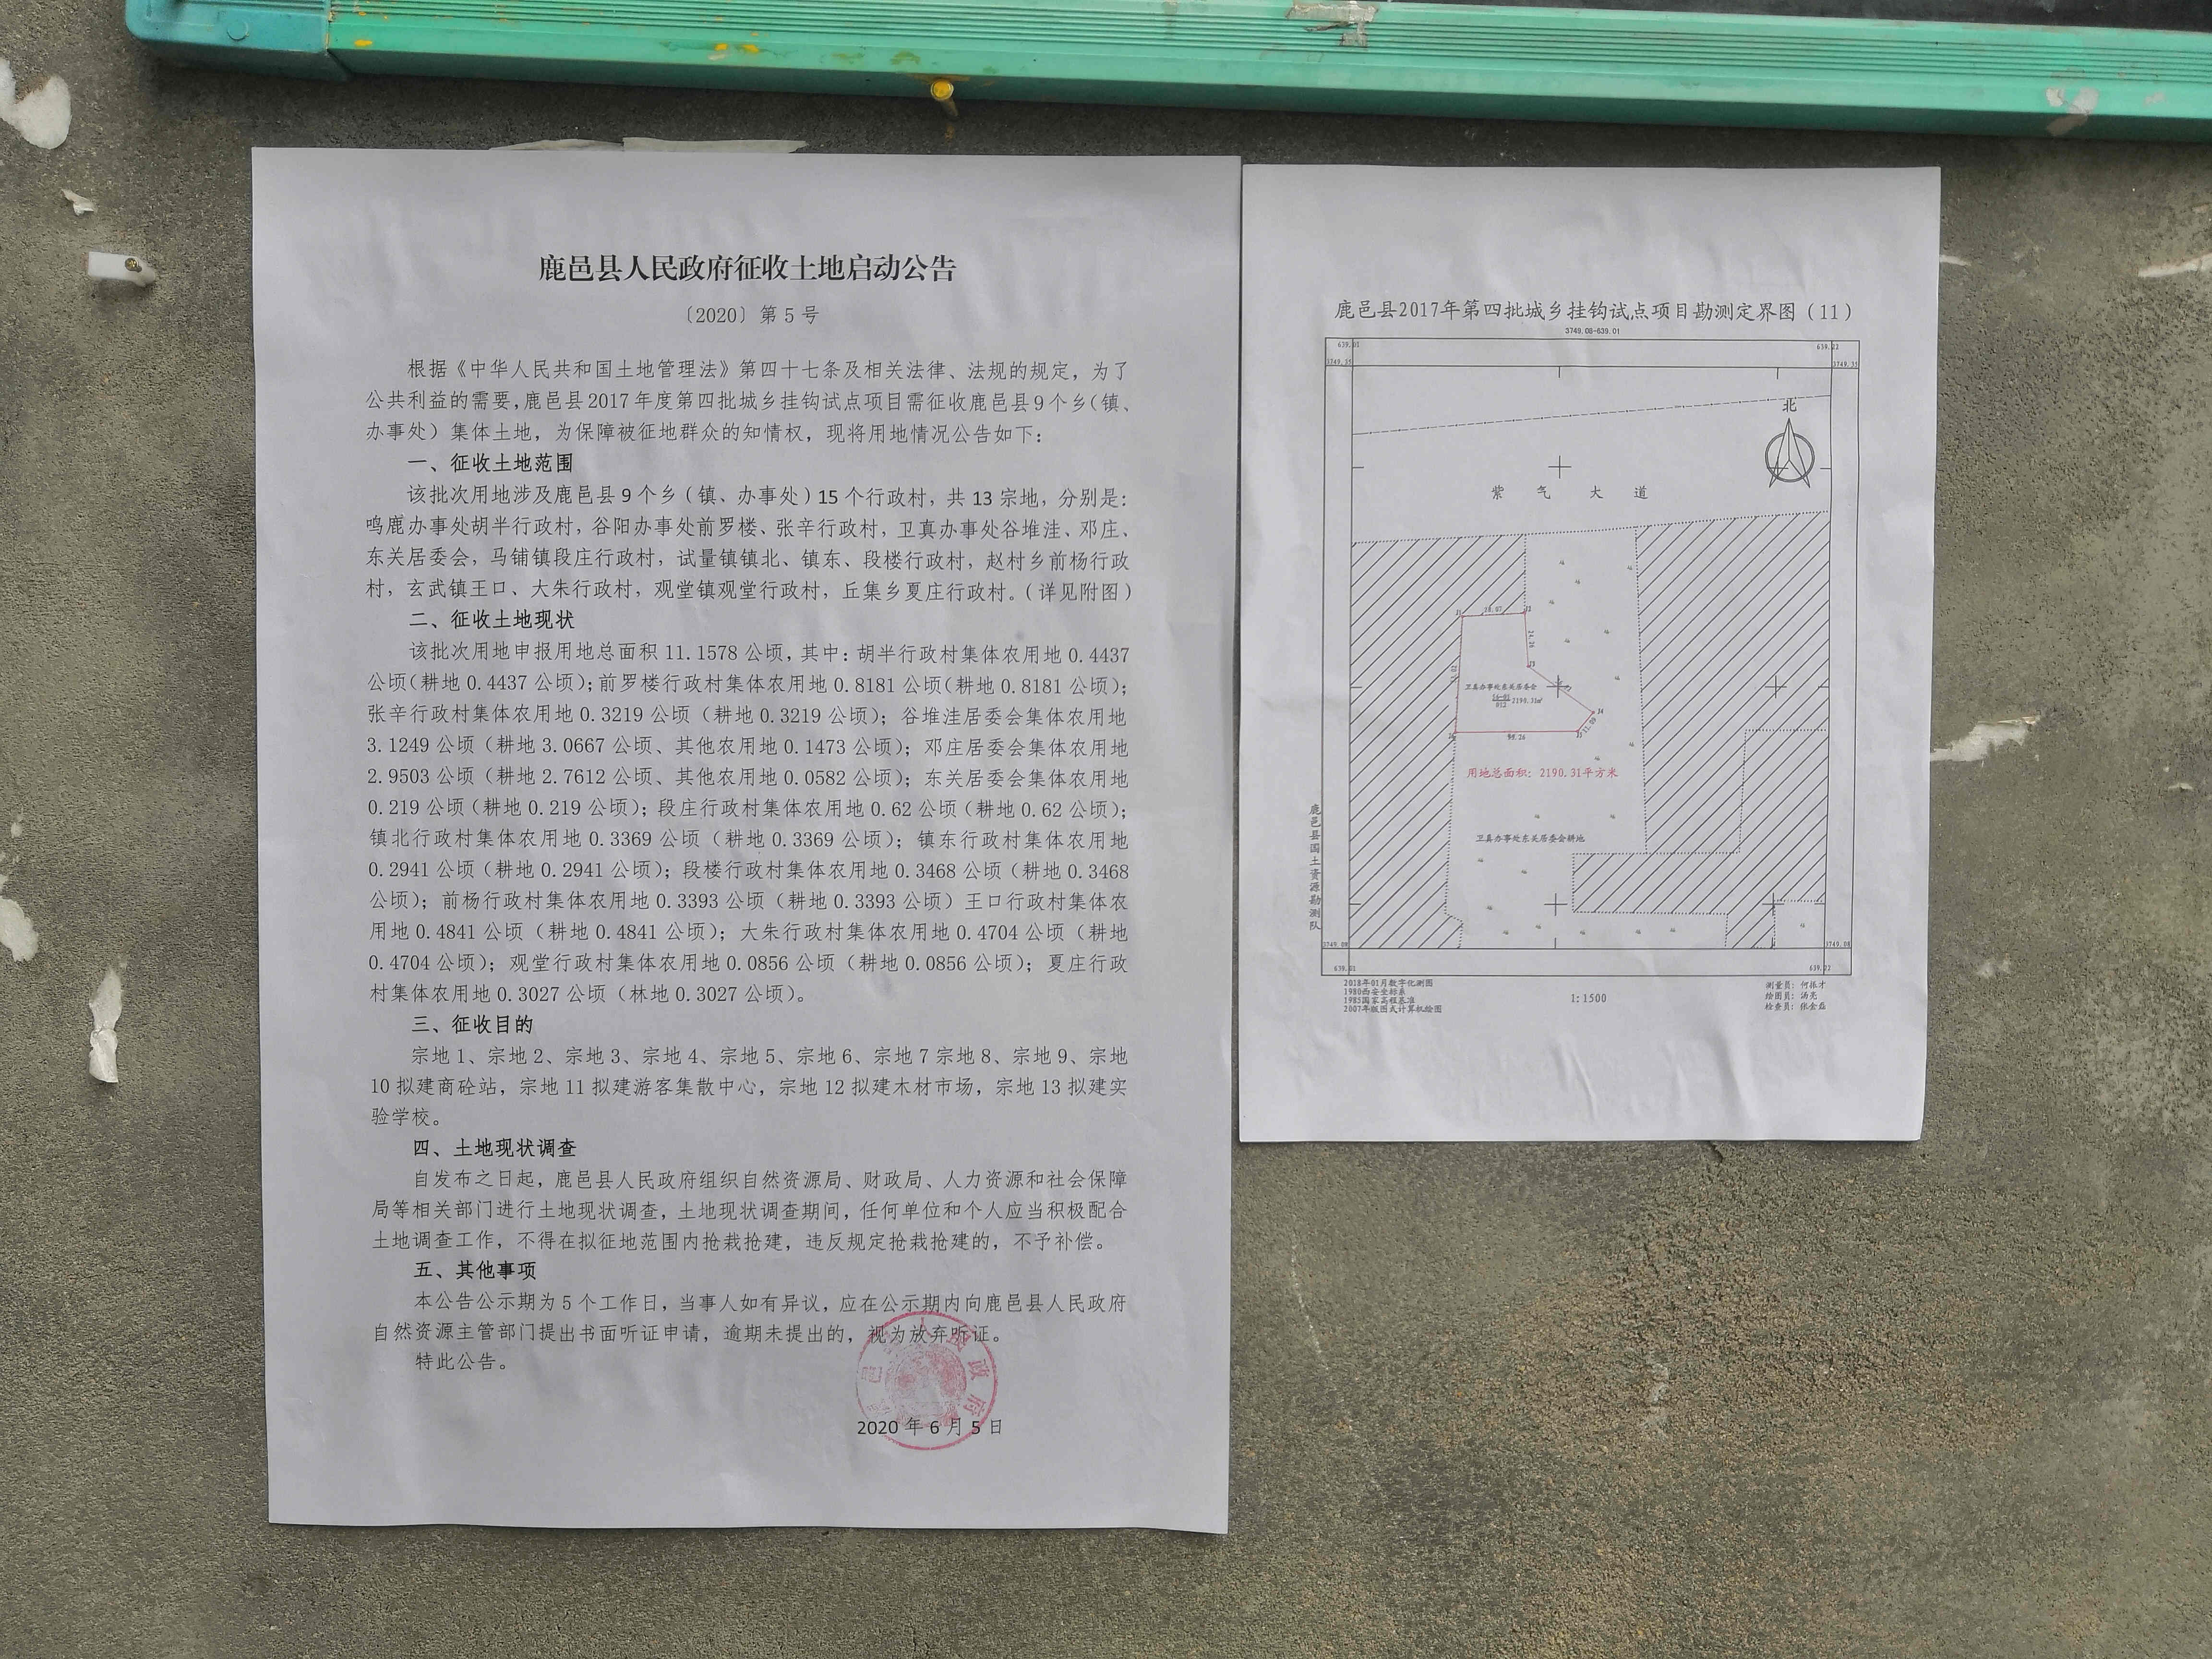 鹿邑县人民政府征收土地启动公告
〔2020〕第5号
根据《中华人民共和国土地管理法》第四十七条及相关法律、法规的规定，为了
公共利益的需要,鹿邑县2017年度第四批城乡挂钩试点项目需征收鹿邑县9个乡(镇、
办事处）集体土地，为保障被征地群众的知情权，现将用地情况公告如下：
一、征收土地范围
该批次用地涉及鹿邑县9个乡（镇、办事处）15个行政村，共13宗地，分别是：
鸣鹿办事处胡半行政村，谷阳办事处前罗楼、张辛行政村，卫真办事处谷堆洼、邓庄、
东关居委会，马铺镇段庄行政村，试量镇镇北、镇东、段楼行政村，赵村乡前杨行政
村，玄武镇王口、大朱行政村，观堂镇观堂行政村，丘集乡夏庄行政村。（详见附图）
二、征收土地现状
该批次用地申报用地总面积11.1578公顷，其中：胡半行政村集体农用地0.4437
公顷(耕地0.4437公顷)；前罗楼行政村集体农用地0.8181公顷(耕地0.8181公顷)；
张辛行政村集体农用地0.3219公顷（耕地0.3219公顷）；谷堆洼居委会集体农用地
3.1249公顷（耕地3.0667公顷、其他农用地0.1473公顷）；邓庄居委会集体农用地
2.9503公顷（耕地2.7612公顷、其他农用地0.0582公顷）；东关居委会集体农用地
0.219公顷（耕地0.219公顷）；段庄行政村集体农用地0.62公顷（耕地0.62公顷）；
镇北行政村集体农用地0.3369公顷（耕地0.3369公顷）；镇东行政村集体农用地
0.2941公顷（耕地0.2941公顷）；段楼行政村集体农用地0.3468公顷（耕地0.3468
公顷）；前杨行政村集体农用地0.3393公顷（耕地0.3393公顷）王口行政村集体农
用地0.4841公顷（耕地0.4841公顷）；大朱行政村集体农用地0.4704公顷（耕地
0.4704公顷）；观堂行政村集体农用地0.0856公顷（耕地0.0856公顷）；夏庄行政
村集体农用地0.3027公顷（林地0.3027公顷）。
三、征收目的
宗地1、宗地2、宗地3、宗地4、宗地5、宗地6、宗地7宗地8、宗地9、宗地
10拟建商砼站，宗地11拟建游客集散中心，宗地12拟建木材市场，宗地13拟建实
验学校。
四、土地现状调查
自发布之日起，鹿邑县人民政府组织自然资源局、财政局、人力资源和社会保障
局等相关部门进行土地现状调查，土地现状调查期间，任何单位和个人应当积极配合
土地调查工作，不得在拟征地范围内抢栽抢建，违反规定抢栽抢建的，不予补偿。
五、其他事项
本公告公示期为5个工作日，当事人如有异议，应在公示期内向鹿邑县人民政府
自然资源主管部门提出书面听证申请，逾期未提出的，视为放弃听证。
特此公告。
2020年6月5日
鹿邑县2017年第四批城乡挂钩试点项目勘测定界图（11）
3749.08-639.01
639.01
639.22
3749.35
3749.35
北
紫气大道
J1
18.07
J2
24.26
J3
卫真办事处东关居委会
2190.31m²
012
J4
11.09
J5
用地总面积：2190.31平方米
卫真办事处东关居委会耕地
鹿邑县国土资源勘测队
3749.08
3749.08
639.01
639.22
2018年01月数字化测图
1980西安坐标系
1985国家高程基准
2007年版图式计算机绘图
1:1500
测量员：何振才
绘图员：汤亮
检查员：张金磊